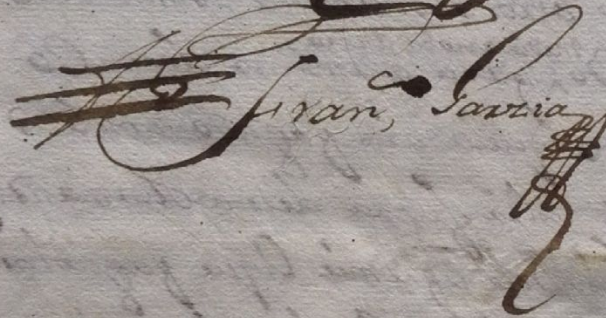 Franco, Garzia